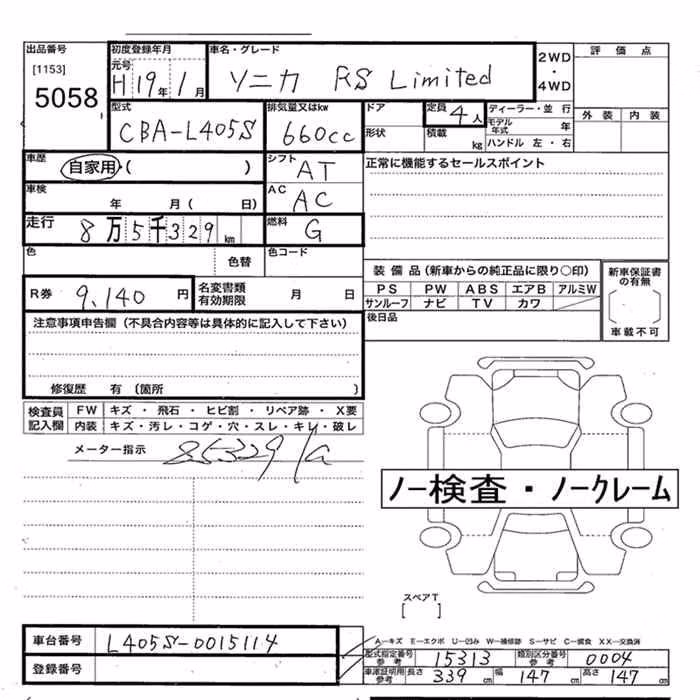 出品番号 初度登録年月 車名・グレード 2WD・4WD 評価点
[1153] 元号
5058 H19年1月 ソニカ RS Limited
型式 排気量又はkw ドア 定員 ディーラー・並行 外装 内装
CBA-L405S 660cc 4人 モデル年式 年
形状 積載 kg ハンドル 左・右
車歴 自家用・( ) シフト AT 正常に機能するセールスポイント
車検 年 月( 日) AC AC
走行 8万5千329km 燃料 G
色 色替 色コード
装備品(新車からの純正品に限り○印) 新車保証書の有無
PS PW ABS エアB アルミW
サンルーフ ナビ TV カワ
車載不可
R券 9,140円 名変書類有効期限 月 日
後日品
注意事項申告欄(不具合内容等は具体的に記入して下さい)
修復歴 有(箇所 )
検査員記入欄 FW キズ・飛石・ヒビ割・リペア跡・X要
内装 キズ・汚レ・コゲ・穴・スレ・キレ・破レ
メーター指示 85329
ノー検査・ノークレーム
スペアT
[ ]
A―キズ E―エクボ U―凹み W―補修跡 S―サビ C―腐食 XX―交換済
車台番号 L405S-0015114
登録番号
型式指定番号参考 15313 類別区分番号参考 0004
車庫証明用参考 長さ 339cm 幅 147cm 高さ 147cm